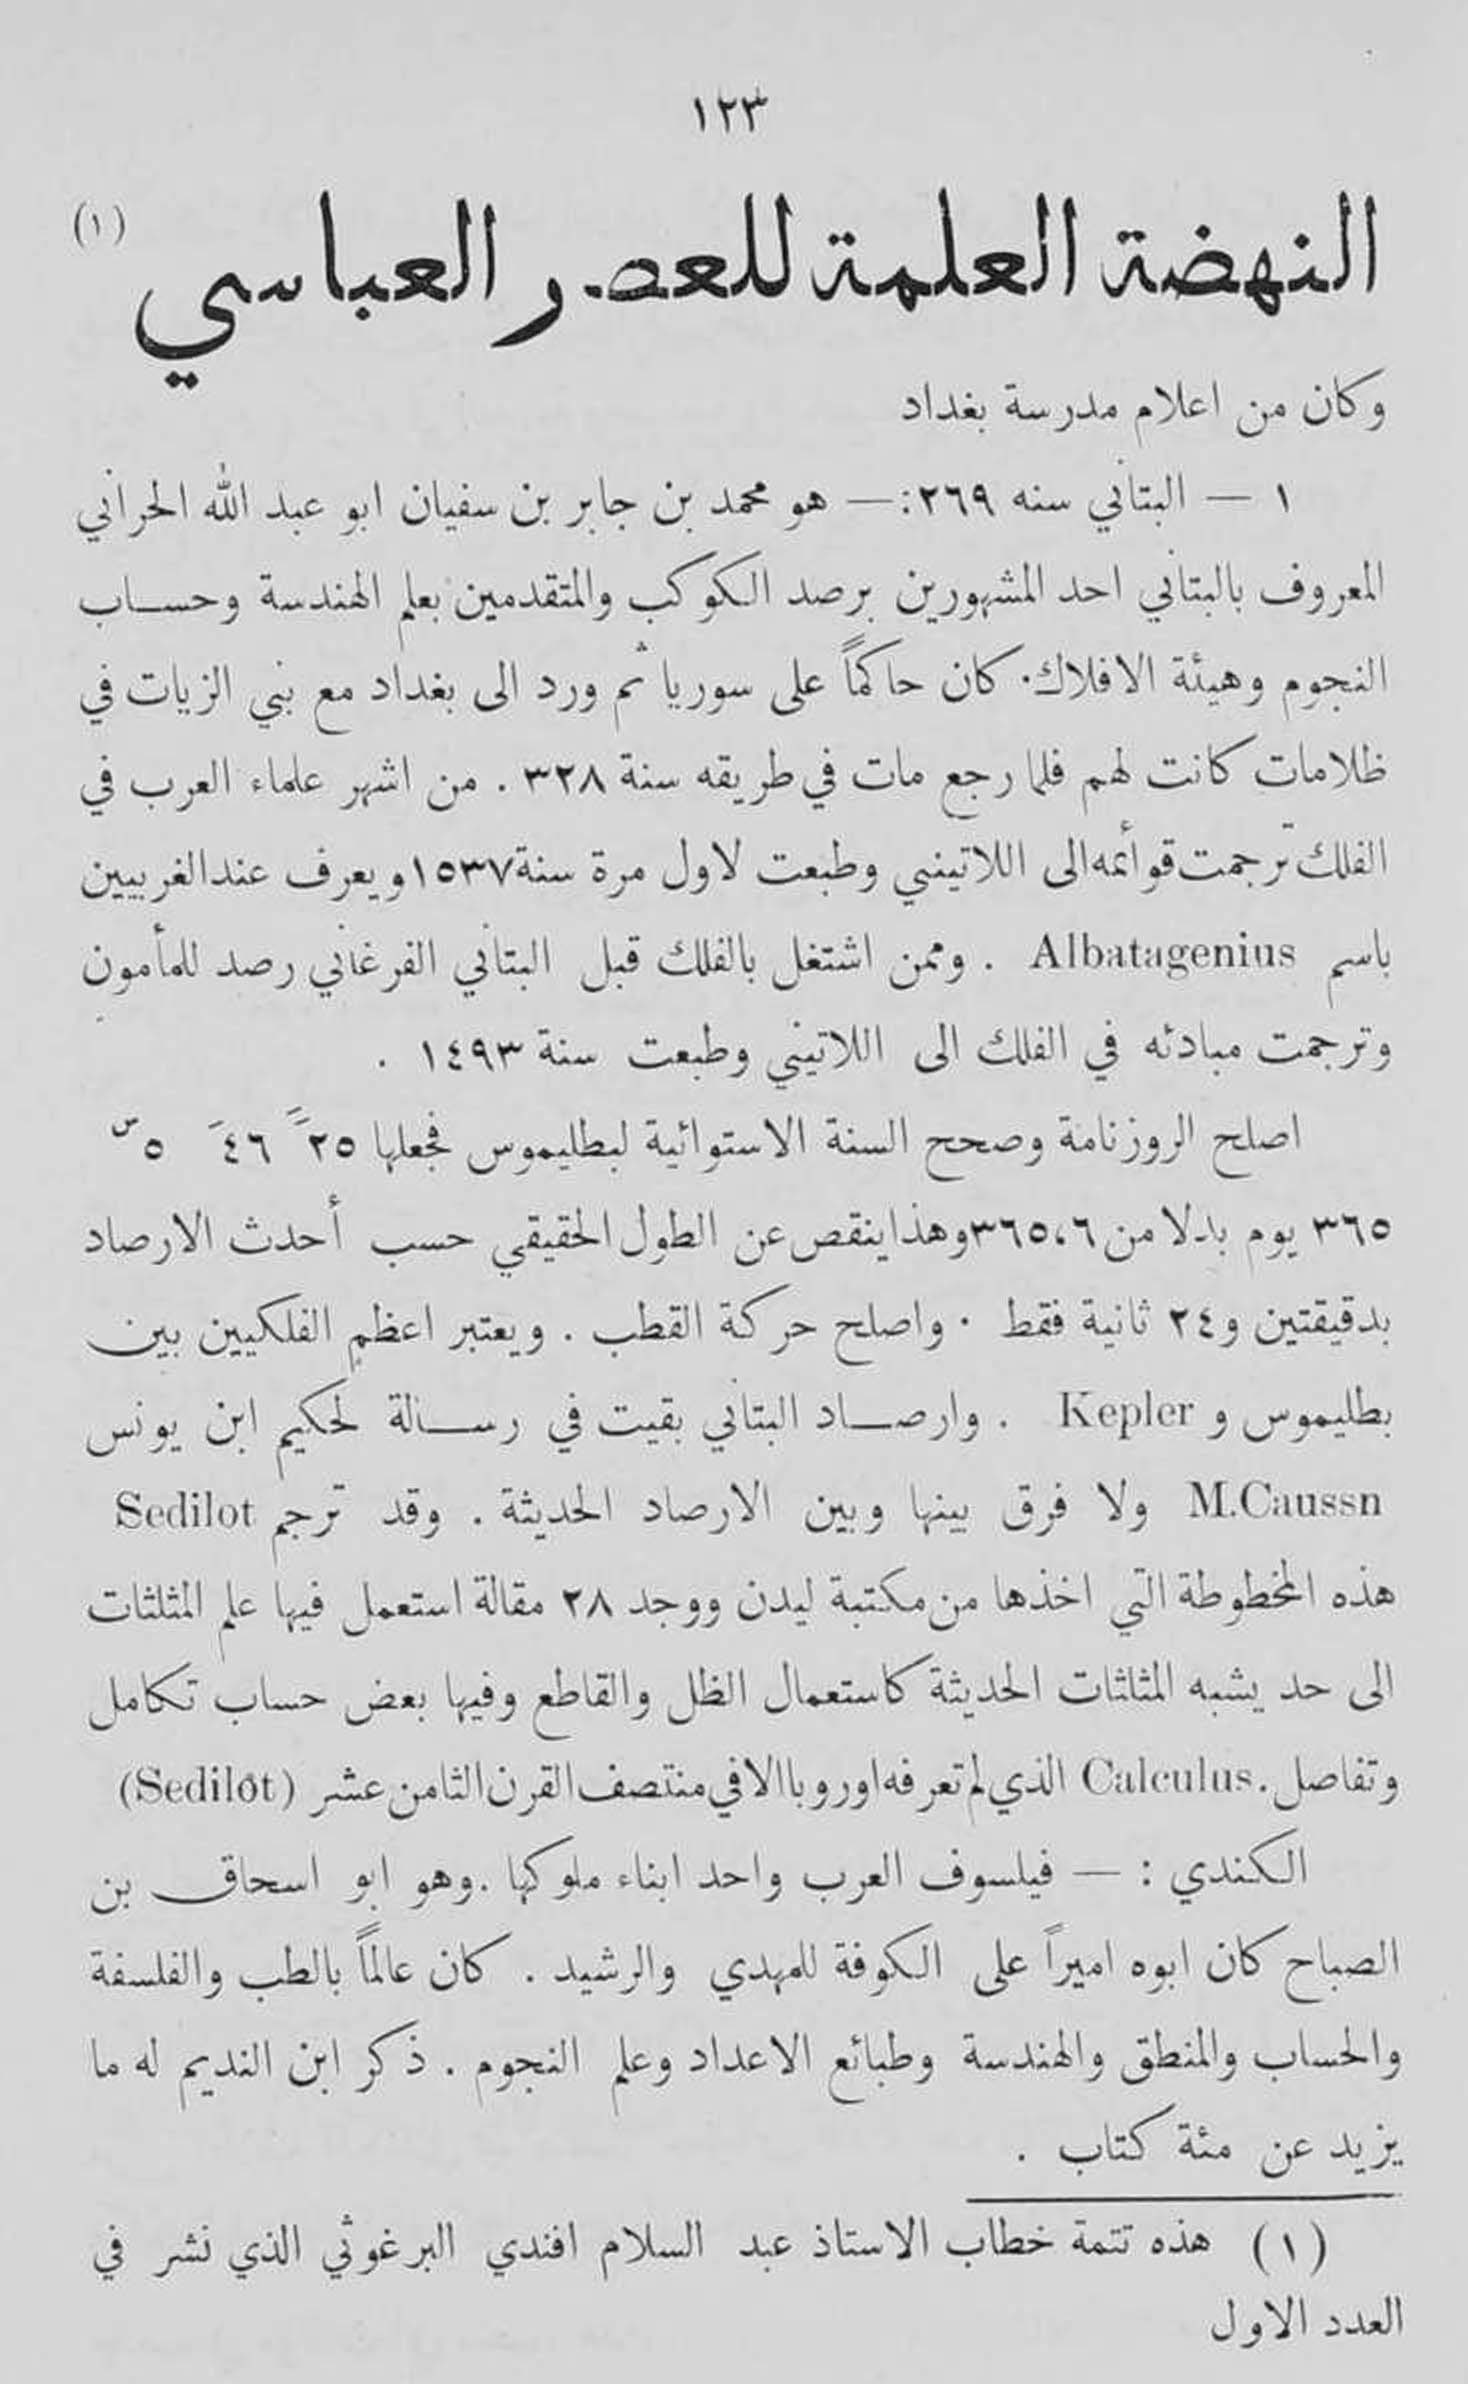 ١٢٣
النهضة العلمة للعصر العباسي (١)
وكان من اعلام مدرسة بغداد
١ — البتاني سنه ٢٦٩: — هو محمد بن جابر بن سفيان ابو عبد الله الحراني
المعروف بالبتاني احد المشهورين برصد الكوكب والمتقدمين بعلم الهندسة وحساب
النجوم وهيئة الافلاك. كان حاكماً على سوريا ثم ورد الى بغداد مع بني الزيات في
ظلامات كانت لهم فلما رجع مات في طريقه سنة ٣٢٨ . من اشهر علماء العرب في
الفلك ترجمت قوأئمه الى اللاتينني وطبعت لاول مرة سنة ١٥٣٧ ويعرف عند الغربيين
باسم Albatagenius . وممن اشتغل بالفلك قبل البتاني الفرغاني رصد للمأمون
وترجمت مبادئه في الفلك الى اللاتيني وطبعت سنة ١٤٩٣ .
اصلح الروزنامة وصحح السنة الاستوائية لبطليموس فجعلها ٢٥ً ٤٦َ ٥س
٣٦٥ يوم بدلا من ٣٦٥،٦ وهذا ينقص عن الطول الحقيقي حسب أحدث الارصاد
بدقيقتين و٢٤ ثانية فقط . واصلح حركة القطب . ويعتبر اعظم الفلكيين بين
بطليموس و Kepler . وارصاد البتاني بقيت في رسالة لحكيم ابن يونس
M.Caussn ولا فرق بينها وبين الارصاد الحديثة . وقد ترجم Sedilot
هذه المخطوطة التي اخذها من مكتبة ليدن ووجد ٢٨ مقالة استعمل فيها علم المثلثات
الى حد يشبه المثلثات الحديثة كاستعمال الظل والقاطع وفيها بعض حساب تكامل
وتفاصل .Calculus الذي لم تعرفه اوروبا الا في منتصف القرن الثامن عشر (Sedilot)
الكندي : — فيلسوف العرب واحد ابناء ملوكها .وهو ابو اسحاق بن
الصباح كان ابوه اميراً على الكوفة للمهدي والرشيد . كان عالماً بالطب والفلسفة
والحساب والمنطق والهندسة وطبائع الاعداد وعلم النجوم . ذكر ابن النديم له ما
يزيد عن مئة كتاب .
(١) هذه تتمة خطاب الاستاذ عبد السلام افندي البرغوثي الذي نشر في
العدد الاول